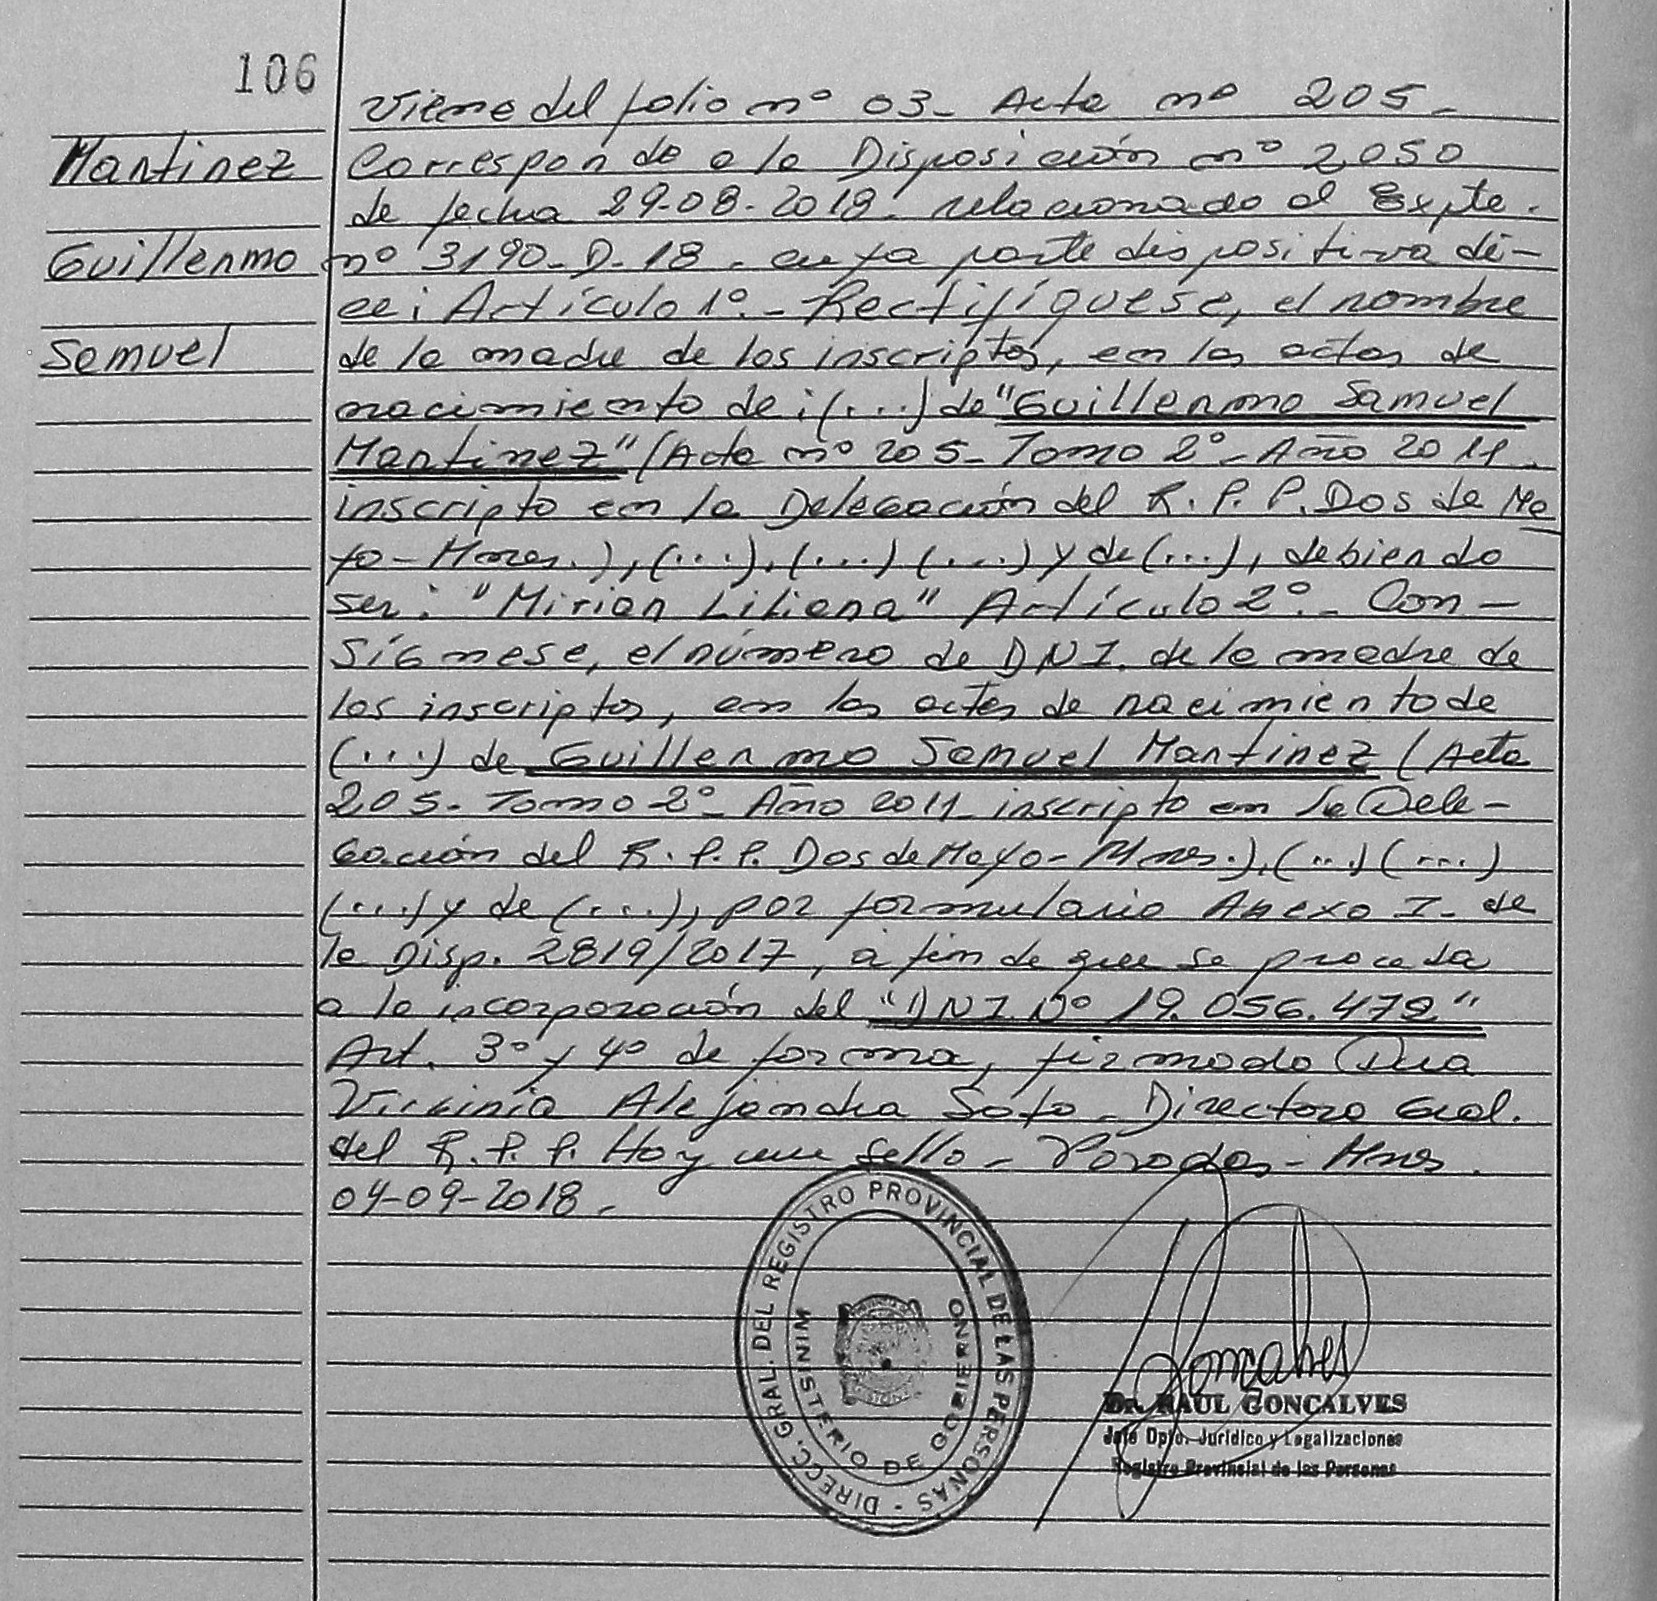 106
Viene del folio nº 03- Acta nº 205-
Martinez
Guillermo
Samuel
Corresponde a la Disposición nº 2050
de fecha 29-08-2018. relacionado al Expte.
nº 3190-D-18. cuya parte dispositiva di-
ce: Artículo 1º.- Rectifíquese, el nombre
de la madre de los inscriptos, en las actas de
nacimiento de: (...) de "Guillermo Samuel
Martinez" (Acta nº 205- Tomo 2º- Año 2011.
inscripto en la Delegación del R.P.P. Dos de Ma
yo-Mnes.), (...), (...) (...) y de (...), debiendo
ser: "Mirian Liliana" Artículo 2º.- Con-
sígnese, el número de DNI. de la madre de
los inscriptos, en las actas de nacimiento de
(...) de Guillermo Samuel Martinez (Acta
205- Tomo 2º- Año 2011- inscripto en la Dele-
gación del R.P.P. Dos de Mayo-Mnes.), (...) (...)
(...) y de (...), por formulario Anexo I- de
la Disp. 2819/2017, a fin de que se proceda
a la incorporación del "DNI Nº 19.056.472"
Art. 3º y 4º de forma, firmado Dra
Virginia Alejandra Soto- Directora Gral.
del R.P.P. Hay un sello- Posadas- Mnes.
04-09-2018.-
DIRECC. GRAL. DEL REGISTRO PROVINCIAL DE LAS PERSONAS -
MINISTERIO DE GOBIERNO
Goncalves
Dr. RAUL GONCALVES
Jefe Dpto. Jurídico y Legalizaciones
Registro Provincial de las Personas